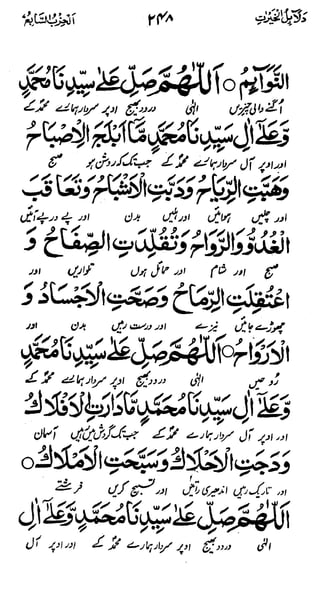 دلائل الخیرات ۲۴۸ الحزب السابع
التَّوَآئِمُ ○ اَللّٰهُمَّ صَلِّ عَلٰى سَيِّدِنَا مُحَمَّدٍ
اُگنے والی چیزیں الٰہی درود بھیج اوپر سردار ہمارے محمدؐ کے
وَّعَلٰٓى اٰلِ سَيِّدِنَا مُحَمَّدٍ مَّآ اَبْلَجَ الْاِصْبَاحُ
اور اوپر آل سردار ہمارے محمدؐ کے جب تک کہ روشن ہو صبح
وَهَبَّتِ الرِّيَاحُ وَدَبَّتِ الْاَشْبَاحُ وَتَعَاقَبَ
اور چلیں ہوائیں اور ہلیں بدن اور پے در پے آئیں
الْغُدُوُّ وَالرَّوَاحُ وَتُقُلِّدَتِ الصِّفَاحُ وَ
صبح اور شام اور حمائل ہوں تلواریں اور
اعْتُقِلَتِ الرِّمَاحُ وَصَحَّتِ الْاَجْسَادُ وَ
چھوڑے جائیں نیزے اور درست رہیں بدن اور
الْاَرْوَاحُ ○ اَللّٰهُمَّ صَلِّ عَلٰى سَيِّدِنَا مُحَمَّدٍ
روحیں الٰہی درود بھیج اوپر سردار ہمارے محمدؐ کے
وَّعَلٰٓى اٰلِ سَيِّدِنَا مُحَمَّدٍ مَّا دَارَتِ الْاَفْلَاكُ
اور اوپر آل سردار ہمارے محمدؐ کے جب تک گردش میں ہیں آسمان
وَدَجَتِ الْاَحْلَاكُ وَسَبَّحَتِ الْاَمْلَاكُ ○
اور تاریک رہیں اندھیری راتیں اور تسبیح کریں فرشتے
اَللّٰهُمَّ صَلِّ عَلٰى سَيِّدِنَا مُحَمَّدٍ وَّعَلٰٓى اٰلِ
الٰہی درود بھیج اوپر سردار ہمارے محمدؐ کے اور اوپر آل